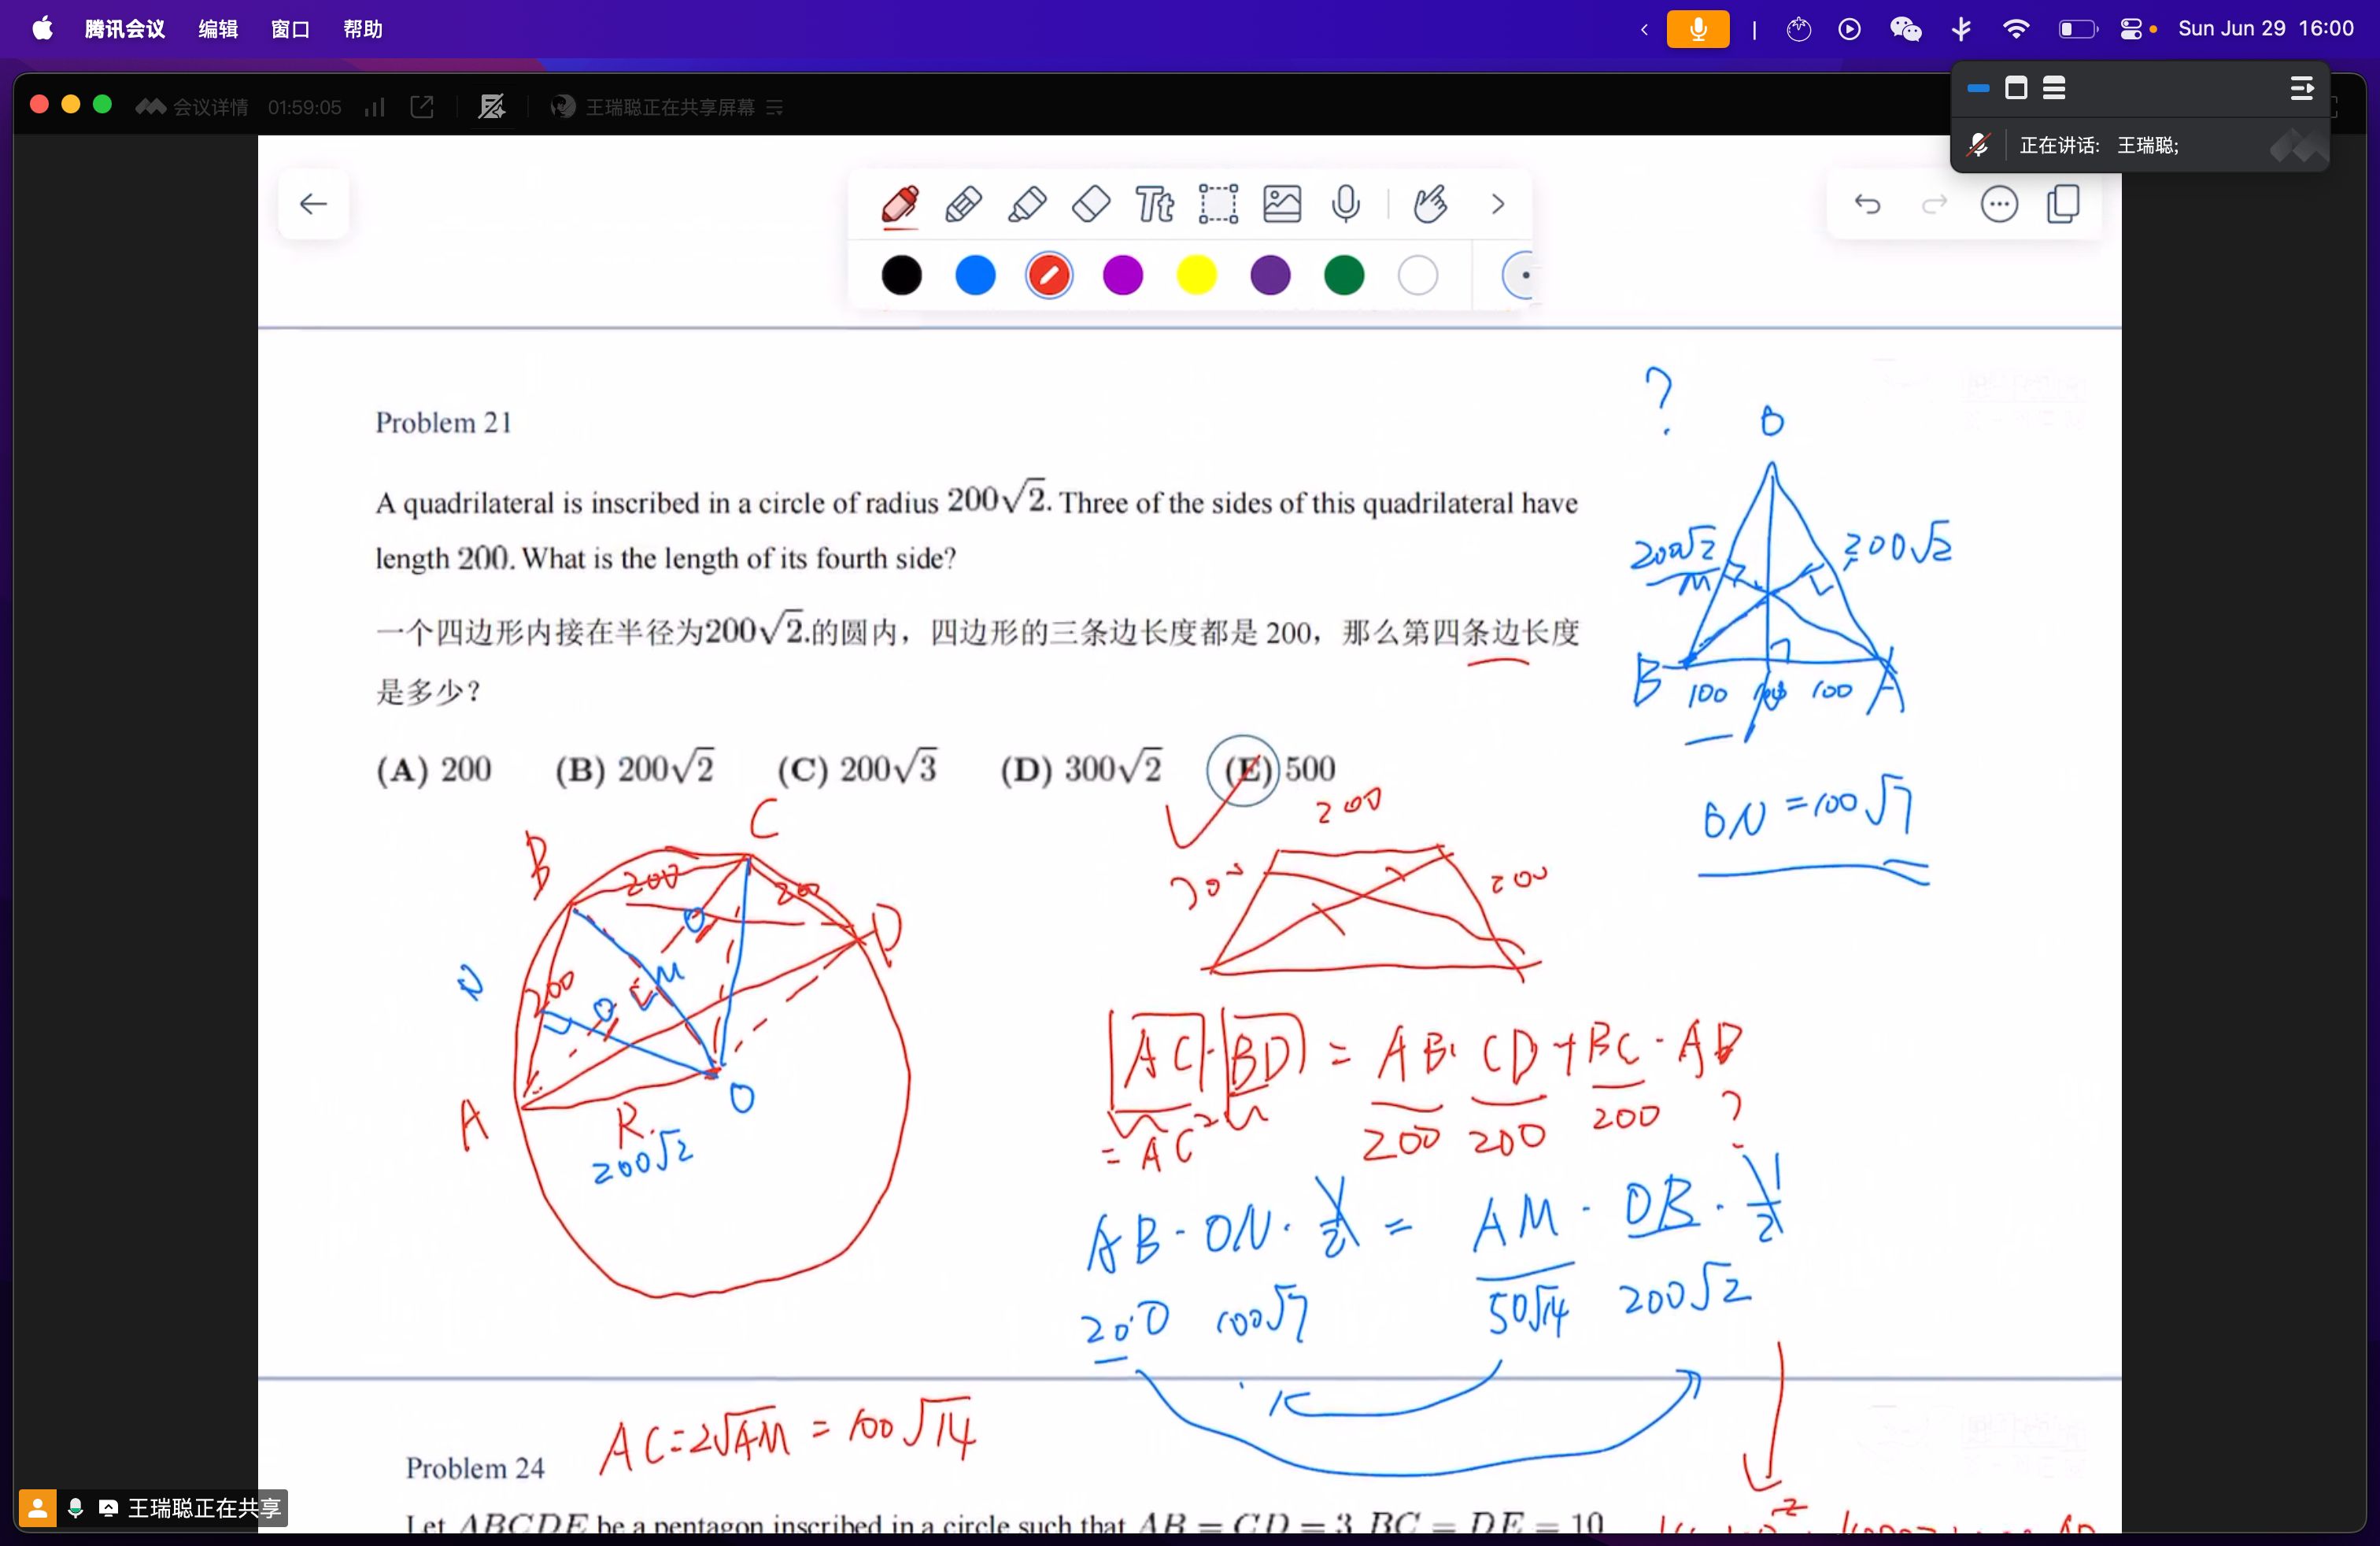 腾讯会议 编辑 窗口 帮助 Sun Jun 29 16:00
会议详情 01:59:05 王瑞聪正在共享屏幕
正在讲话: 王瑞聪;
Tt
Problem 21
A quadrilateral is inscribed in a circle of radius 200√2. Three of the sides of this quadrilateral have
length 200. What is the length of its fourth side?
一个四边形内接在半径为200√2.的圆内，四边形的三条边长度都是 200，那么第四条边长度
是多少？
(A) 200 (B) 200√2 (C) 200√3 (D) 300√2 (E) 500
?
O
200√2 200√2
M
B 100 100 A
ON = 100√7
B C
200 200
D
N 200 M
A O
R.
200√2
200
200 200
AC · BD = AB · CD + BC · AD
= AC² 200 200 200 ?
AB · ON · 1/2 = AM · OB · 1/2
200 100√7 50√14 200√2
AC = 2√AM = 100√14
Problem 24
王瑞聪正在共享
Let ABCDE be a pentagon inscribed in a circle such that AB = CD = 3, BC = DE = 10